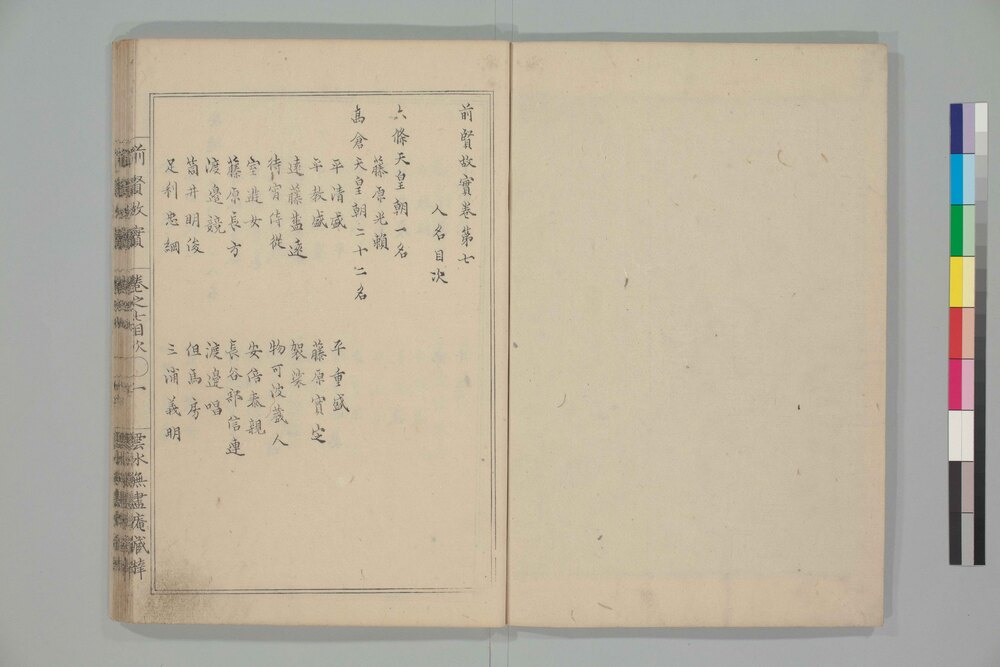 前賢故實卷第七
人名目次
六條天皇朝一名
藤原光頼
高倉天皇朝二十二名
平清盛
平重盛
平教盛
藤原實定
遠藤盛遠
袈裟
待宵侍從
物可波藏人
室遊女
安倍泰親
藤原長方
長谷部信連
渡邉競
渡邉唱
筒井明俊
但馬房
足利忠綱
三浦義明
前賢故實
卷之七目次
一
雲水無盡庵藏梓